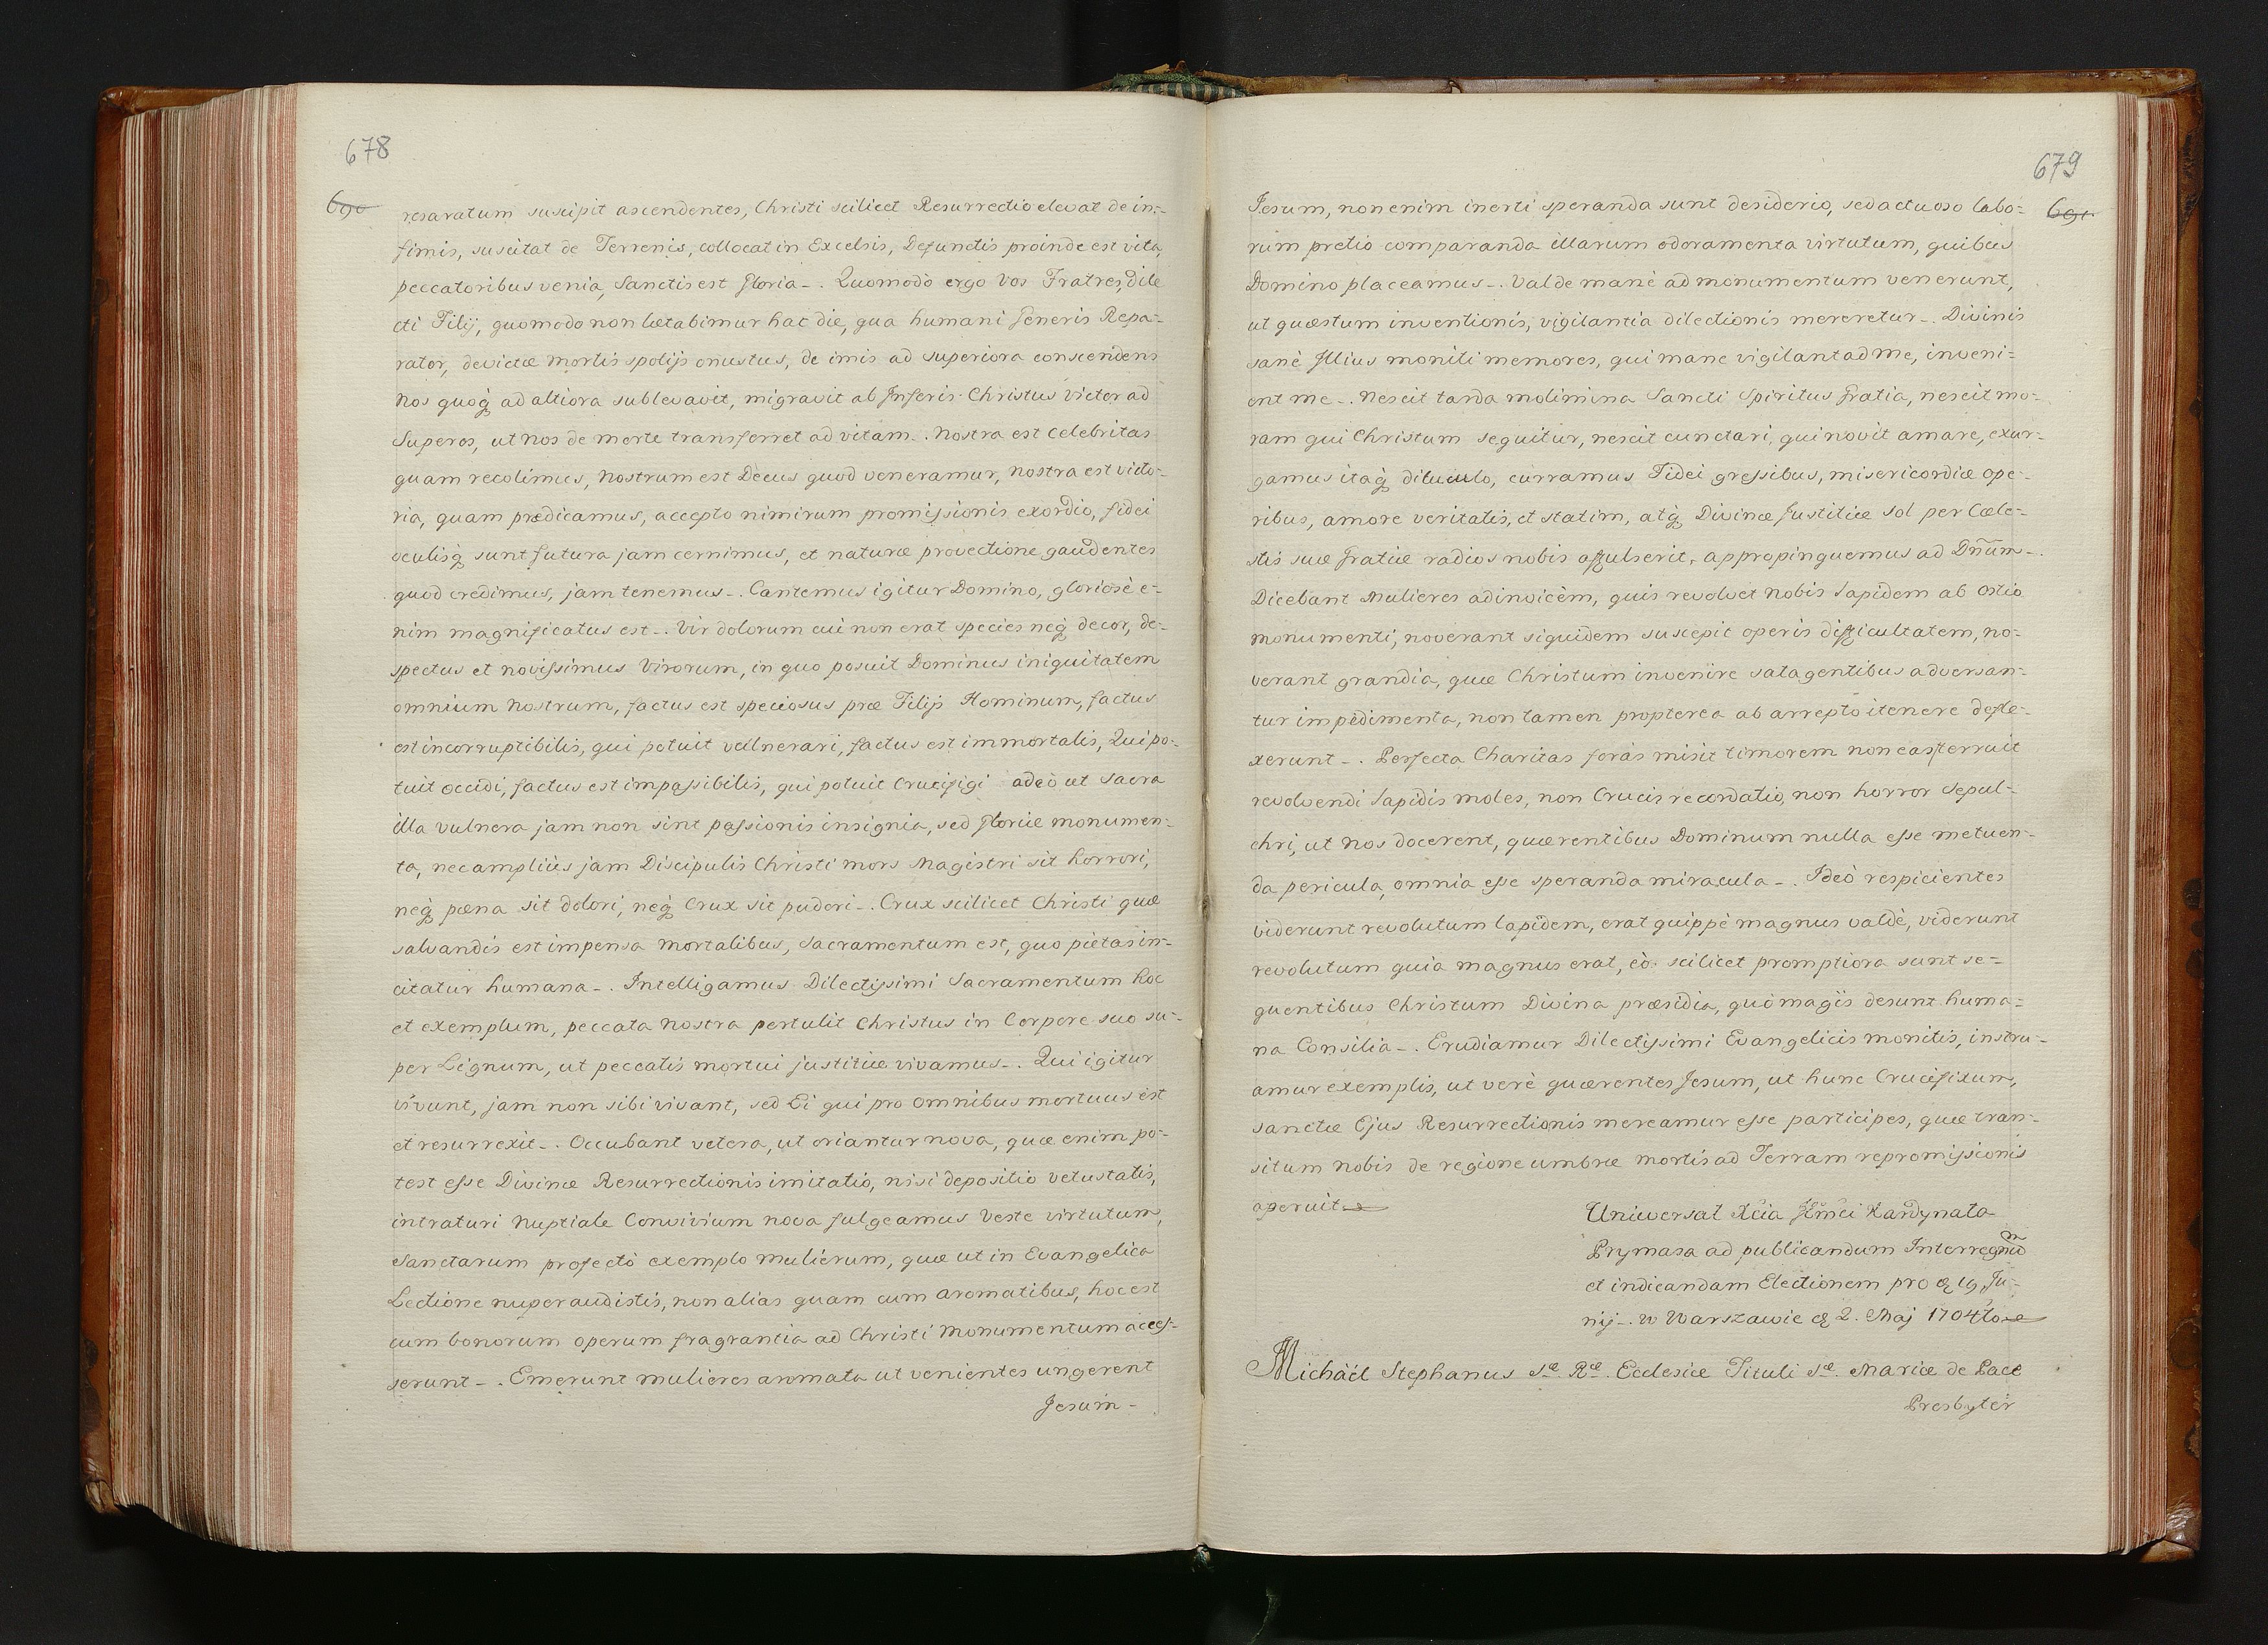 678
690
resaratum suscipit ascendentes, Christi scilicet Resurrectio elevat de in-
fimis, suscitat de Terrenis, collocat in Excelsis, Defunctis proinde est vita,
peccatoribus venia, Sanctis est Gloria-. Quomodò ergo Vos Fratres, dile
cti Filij, quomodo non lætabimur hac die, qua humani Generis Repa-
rator, devictæ mortis spolijs onustus, de imis ad superiora conscendens
nos quoq; ad altiora sublevavit, migravit ab Inferis Christus Victor ad
Superos, ut nos de morte transferret ad vitam-. Nostra est celebritas
quam recolimus, nostrum est Decus quod veneramur, nostra est victo-
ria, quam prædicamus, accepto nimirum promissionis exordio, fidei
oculisq; sunt futura jam cernimus, et naturæ provectione gaudentes
quod credimus, jam tenemus-. Cantemus igitur Domino, gloriosè e-
nim magnificatus est-. Vir dolorum cui non erat species neq; decor, de-
spectus et novissimus Virorum, in quo posuit Dominus iniquitatem
omnium nostrum, factus est speciosus præ Filijs Hominum, factus
est incorruptibilis, qui potuit vulnerari, factus est immortalis, Qui po-
tuit occidi, factus est impassibilis, qui potuit Crucifigi adeò ut Sacra
illa vulnera jam non sint passionis insignia, sed Gloriæ monumen-
ta, nec ampliùs jam Discipulis Christi mors Magistri sit horrori,
neq; pæna sit dolori, neq; Crux sit pudori-. Crux scilicet Christi quæ
salvandis est impensa mortalibus, Sacramentum est, quo pietas in-
citatur humana-. Intelligamus Dilectissimi Sacramentum hoc
et exemplum, peccata nostra pertulit Christus in Corpore suo su-
per Lignum, ut peccatis mortui justitiæ vivamus-. Qui igitur
vivunt, jam non sibi vivant, sed Ei qui pro omnibus mortuus est
et resurrexit-. Occubant vetera, ut oriantur nova, quæ enim po-
test esse Divinæ Resurrectionis imitatio, nisi depositio vetustatis,
intraturi Nuptiale Convivium nova fulgeamus Veste virtutum,
Sanctarum profectò exemplo mulierum, quæ ut in Evangelica
Lectione nuper audistis, non alias quam cum aromatibus, hoc est
cum bonorum operum fragrantia ad Christi monumentum acces-
serunt-. Emerunt mulieres aromata ut venientes ungerent
Jesum-
679
691
Jesum, non enim inerti speranda sunt desiderio, sed actuoso labo-
rum pretio comparanda illarum odoramenta virtutum, quibus
Domino placeamus-. Valde manè ad monumentum venerunt,
ut quæstum inventionis, vigilantia dilectionis mereretur-. Divinis
sanè Illius moniti memores, qui mane vigilant ad me, inveni-
ent me-. Nescit tarda molimina Sancti Spiritus Gratia, nescit mo-
ram qui Christum sequitur, nescit cunctari, qui novit amare, exur-
gamus itaq; diluculo, curramus Fidei gressibus, misericordiæ ope-
ribus, amore veritatis, et statim, atq; Divinæ Justitiæ Sol per Cæle-
stis suæ Gratiæ radios nobis affulserit, appropinquemus ad Dnūm-.
Dicebant Mulieres adinvicèm, quis revolvet nobis lapidem ab ostio
monumenti, noverant siquidem suscepit operis difficultatem, no-
verant grandia, quæ Christum invenire satagentibus adversan-
tur impedimenta, non tamen propterea ab arrepto itenere defle-
xerunt-. Perfecta Charitas foràs misit timorem non eas terruit
revolvendi lapidis moles, non Crucis recordatio, non horror Sepul-
chri, ut nos docerent, quærentibus Dominum nulla esse metuen-
da pericula, omnia esse speranda miracula-. Ideò respicientes
viderunt revolutum lapidem, erat quippè magnus valdè, viderunt
revolutum quia magnus erat, eò scilicet promptiora sunt se-
quentibus Christum Divina præsidia, quò magis desunt huma-
na Consilia-. Erudiamur Dilectissimi Evangelicis monitis, instru-
amur exemplis, ut verè quærentes Jesum, ut hunc Crucifixum,
sanctæ Ejus Resurrectionis mereamur esse participes, quæ tran-
situm nobis de regione umbræ mortis ad Terram repromissionis
aperuit
Uniwersał Xcia Jmci Kardynała
Prymasa ad publicandum Interregnum
et indicandam Electionem pro d 19 Ju-
nij-. w Warszawie d 2. Maj 1704to
Michäel Stephanus Sæ. Ræ. Ecclesiæ Tituli Sæ. Mariæ de Pace
Presbyter